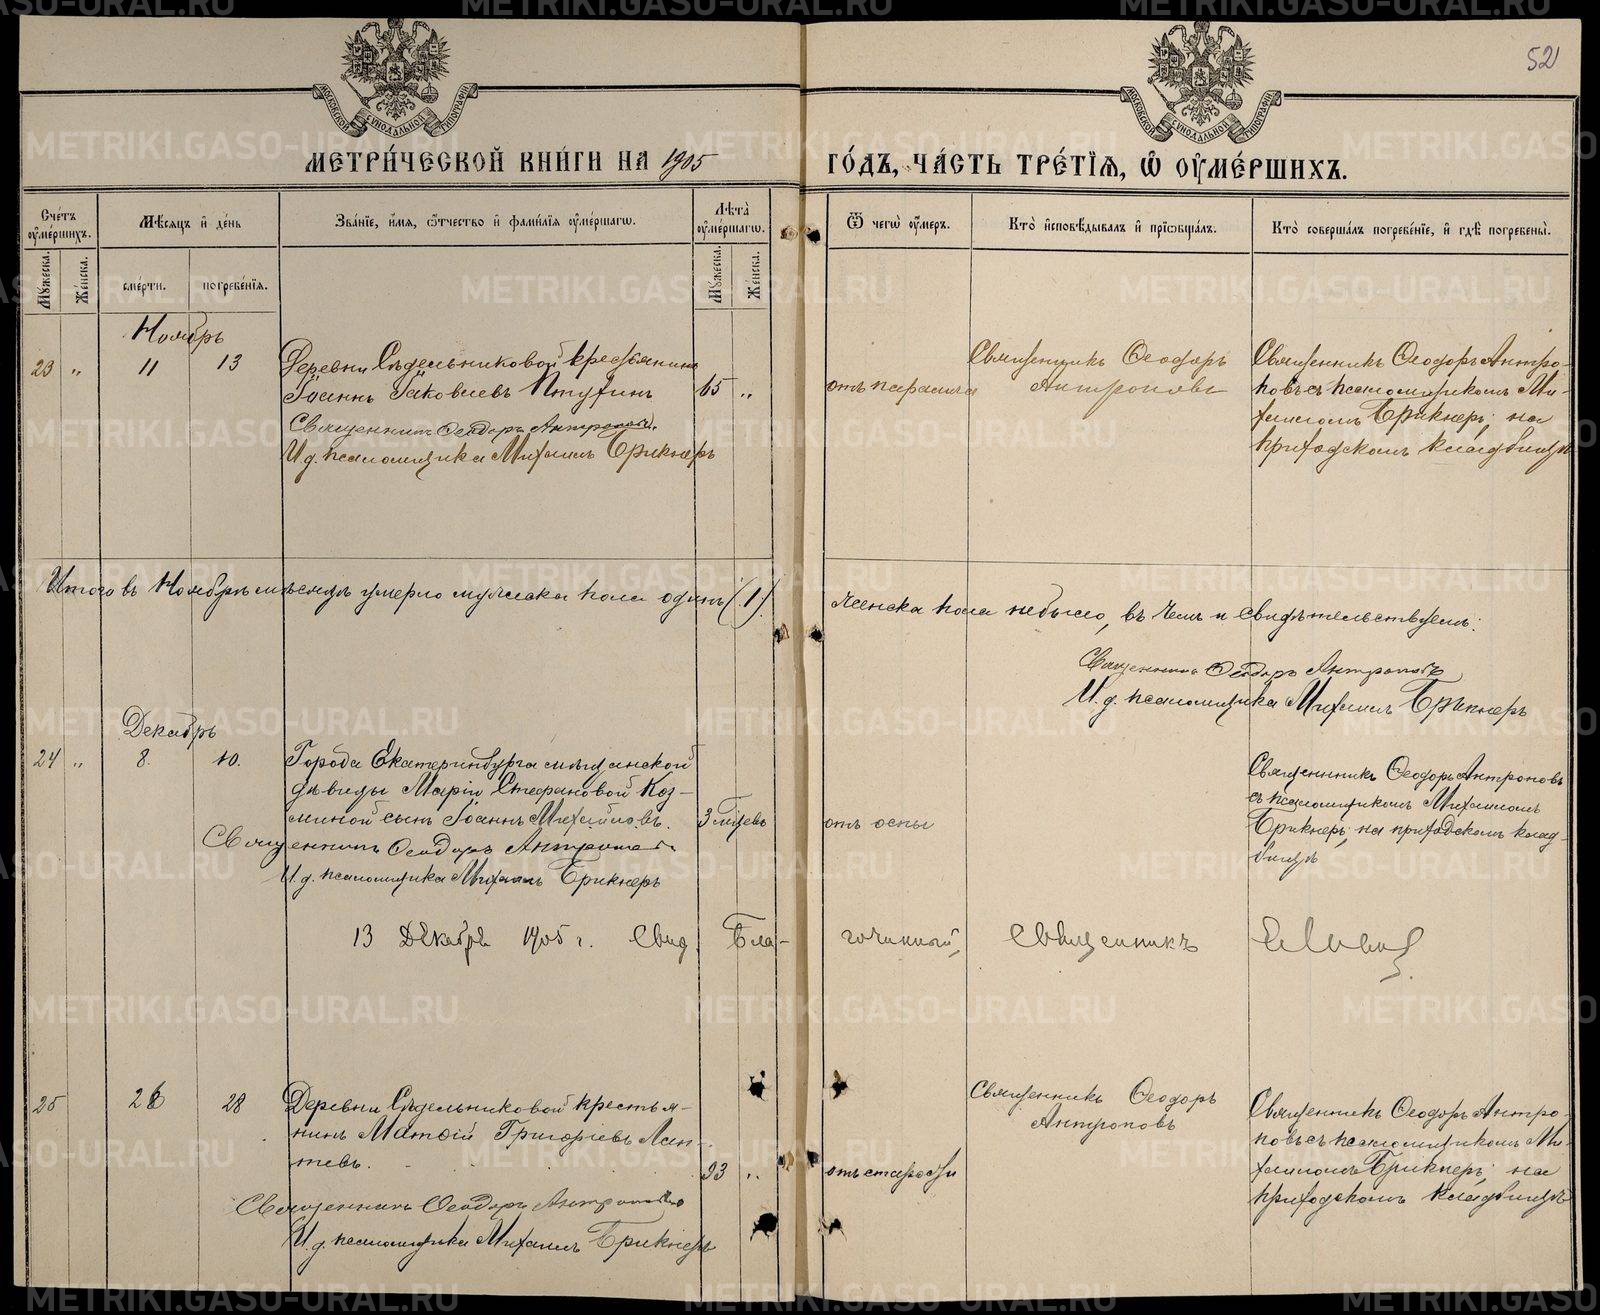 52
МОСКОВСКОЙ СѴНОДАЛЬНОЙ ТИПОГРАФІИ
МОСКОВСКОЙ СѴНОДАЛЬНОЙ ТИПОГРАФІИ
МЕТРИ́ЧЕСКОЙ КНИ́ГИ НА 1905
ГО́ДЪ, ЧА́СТЬ ТРЕ́ТЇѦ, Ѡ ОУМЕ́РШИХЪ.
Сче́тъ оумершихъ.
Мѣсяцъ и де́нь
Зва́нїе, и́мя, ѻтчество и фами́лїя оуме́ршагѡ.
Лѣта оуме́ршагѡ.
Ѿ чегѡ̀ оумеръ.
Кто̀ исповѣдывалъ и прїѡбща́лъ.
Кто̀ соверша́лъ погребе́нїе, и гдѣ̀ погребены̀.
Мужеска.
Женска.
сме́рти.
погребе́нїя.
Мужеска.
Женска.
Ноябрь
23 „ 11 13 Деревни Сѣдельниковой крестьянинъ
Іоаннъ Іаковлевъ Птухинъ 65 „
Священникъ Ѳеодоръ Антроповъ.
И.д. псаломщика Михаилъ Брикнеръ
отъ паралича
Священникъ Ѳеодоръ
Антроповъ
Священникъ Ѳеодоръ Антро-
повъ съ псаломщикомъ Ми-
хаиломъ Брикнеръ; на
приходскомъ кладбищѣ
Итого въ Ноябрѣ мѣсяцѣ умерло мужска пола одинъ (1)
женска пола небыло, въ чемъ и свидѣтельствуемъ:
Священникъ Ѳеодоръ Антроповъ
И.д. псаломщика Михаилъ Брикнеръ
Декабрь
24 „ 8. 10. Города Екатеринбурга мѣщанской
дѣвицы Маріи Стефановой Коз-
миной сынъ Іоаннъ Михайловъ. 3 мѣсяцевъ
Священникъ Ѳеодоръ Антроповъ
И.д. псаломщика Михаилъ Брикнеръ
отъ оспы
Священникъ Ѳеодоръ Антроповъ
съ псаломщикомъ Михаиломъ
Брикнеръ; на приходскомъ клад-
бищѣ
13 Декабря 1905 г. Свид. Бла-
гочинный, Священникъ
25 26 28 Деревни Сѣдельниковой крестья-
нинъ Матѳій Григоріевъ Лап-
тевъ. 93 „
Священникъ Ѳеодоръ Антроповъ
И.д. псаломщика Михаилъ Брикнеръ
отъ старости
Священникъ Ѳеодоръ
Антроповъ
Священникъ Ѳеодоръ Антро-
повъ съ псаломщикомъ Ми-
хаиломъ Брикнеръ; на
приходскомъ кладбищѣ
METRIKI.GASO-URAL.RU